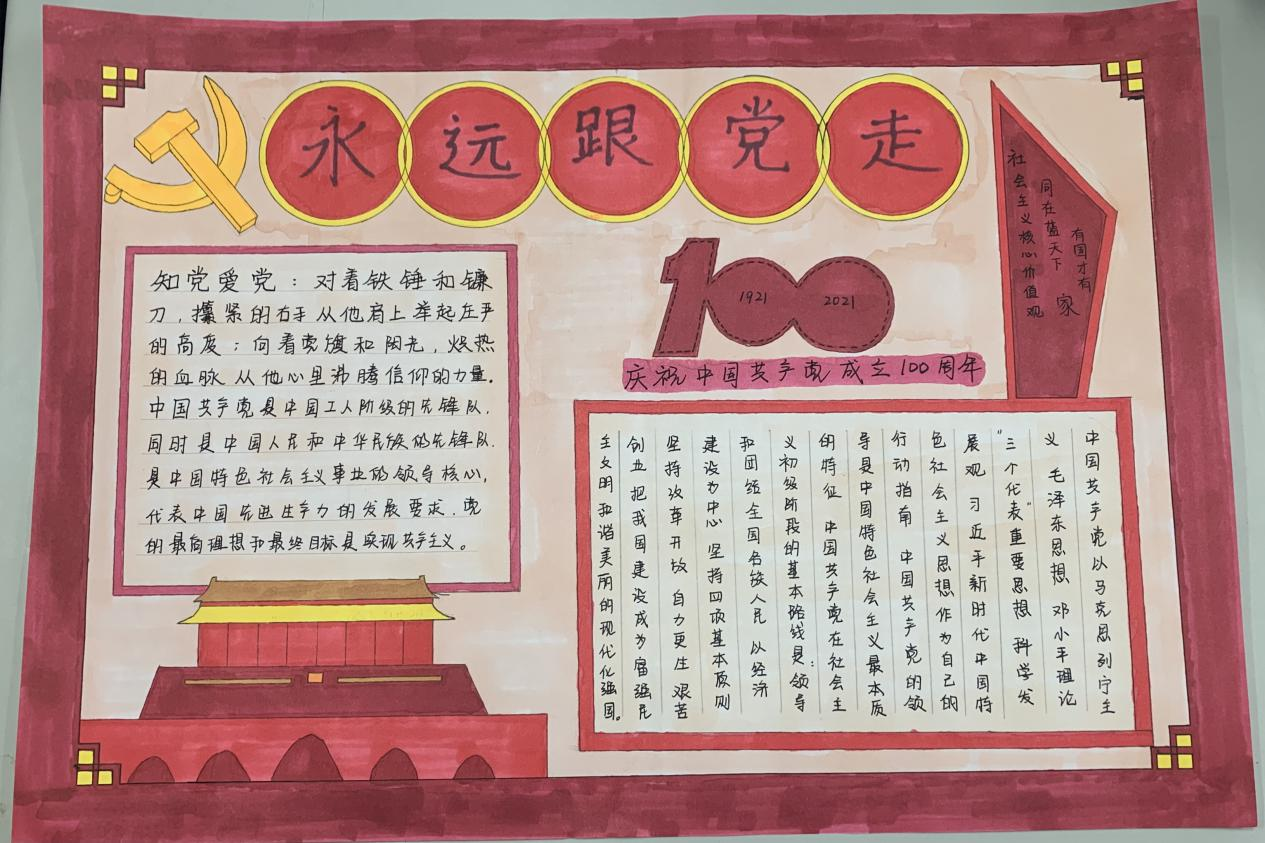 永远跟党走
知党爱党：对着铁锤和镰
刀，攥紧的右手从他肩上举起庄严
的高度；向着党旗和阳光，炽热
的血脉从他心里沸腾信仰的力量。
中国共产党是中国工人阶级的先锋队，
同时是中国人民和中华民族的先锋队，
是中国特色社会主义事业的领导核心，
代表中国先进生产力的发展要求，党
的最高理想和最终目标是实现共产主义。
100
1921 2021
庆祝中国共产党成立100周年
社会主义核心价值观
同在蓝天下
有国才有家
中国共产党以马克思列宁主
义 毛泽东思想 邓小平理论
“三个代表”重要思想 科学发
展观 习近平新时代中国特
色社会主义思想作为自己的
行动指南 中国共产党的领
导是中国特色社会主义最本质
的特征 中国共产党在社会主
义初级阶段的基本路线是：领导
和团结全国各族人民 以经济
建设为中心 坚持四项基本原则
坚持改革开放 自力更生 艰苦
创业 把我国建设成为富强民
主文明和谐美丽的现代化强国。